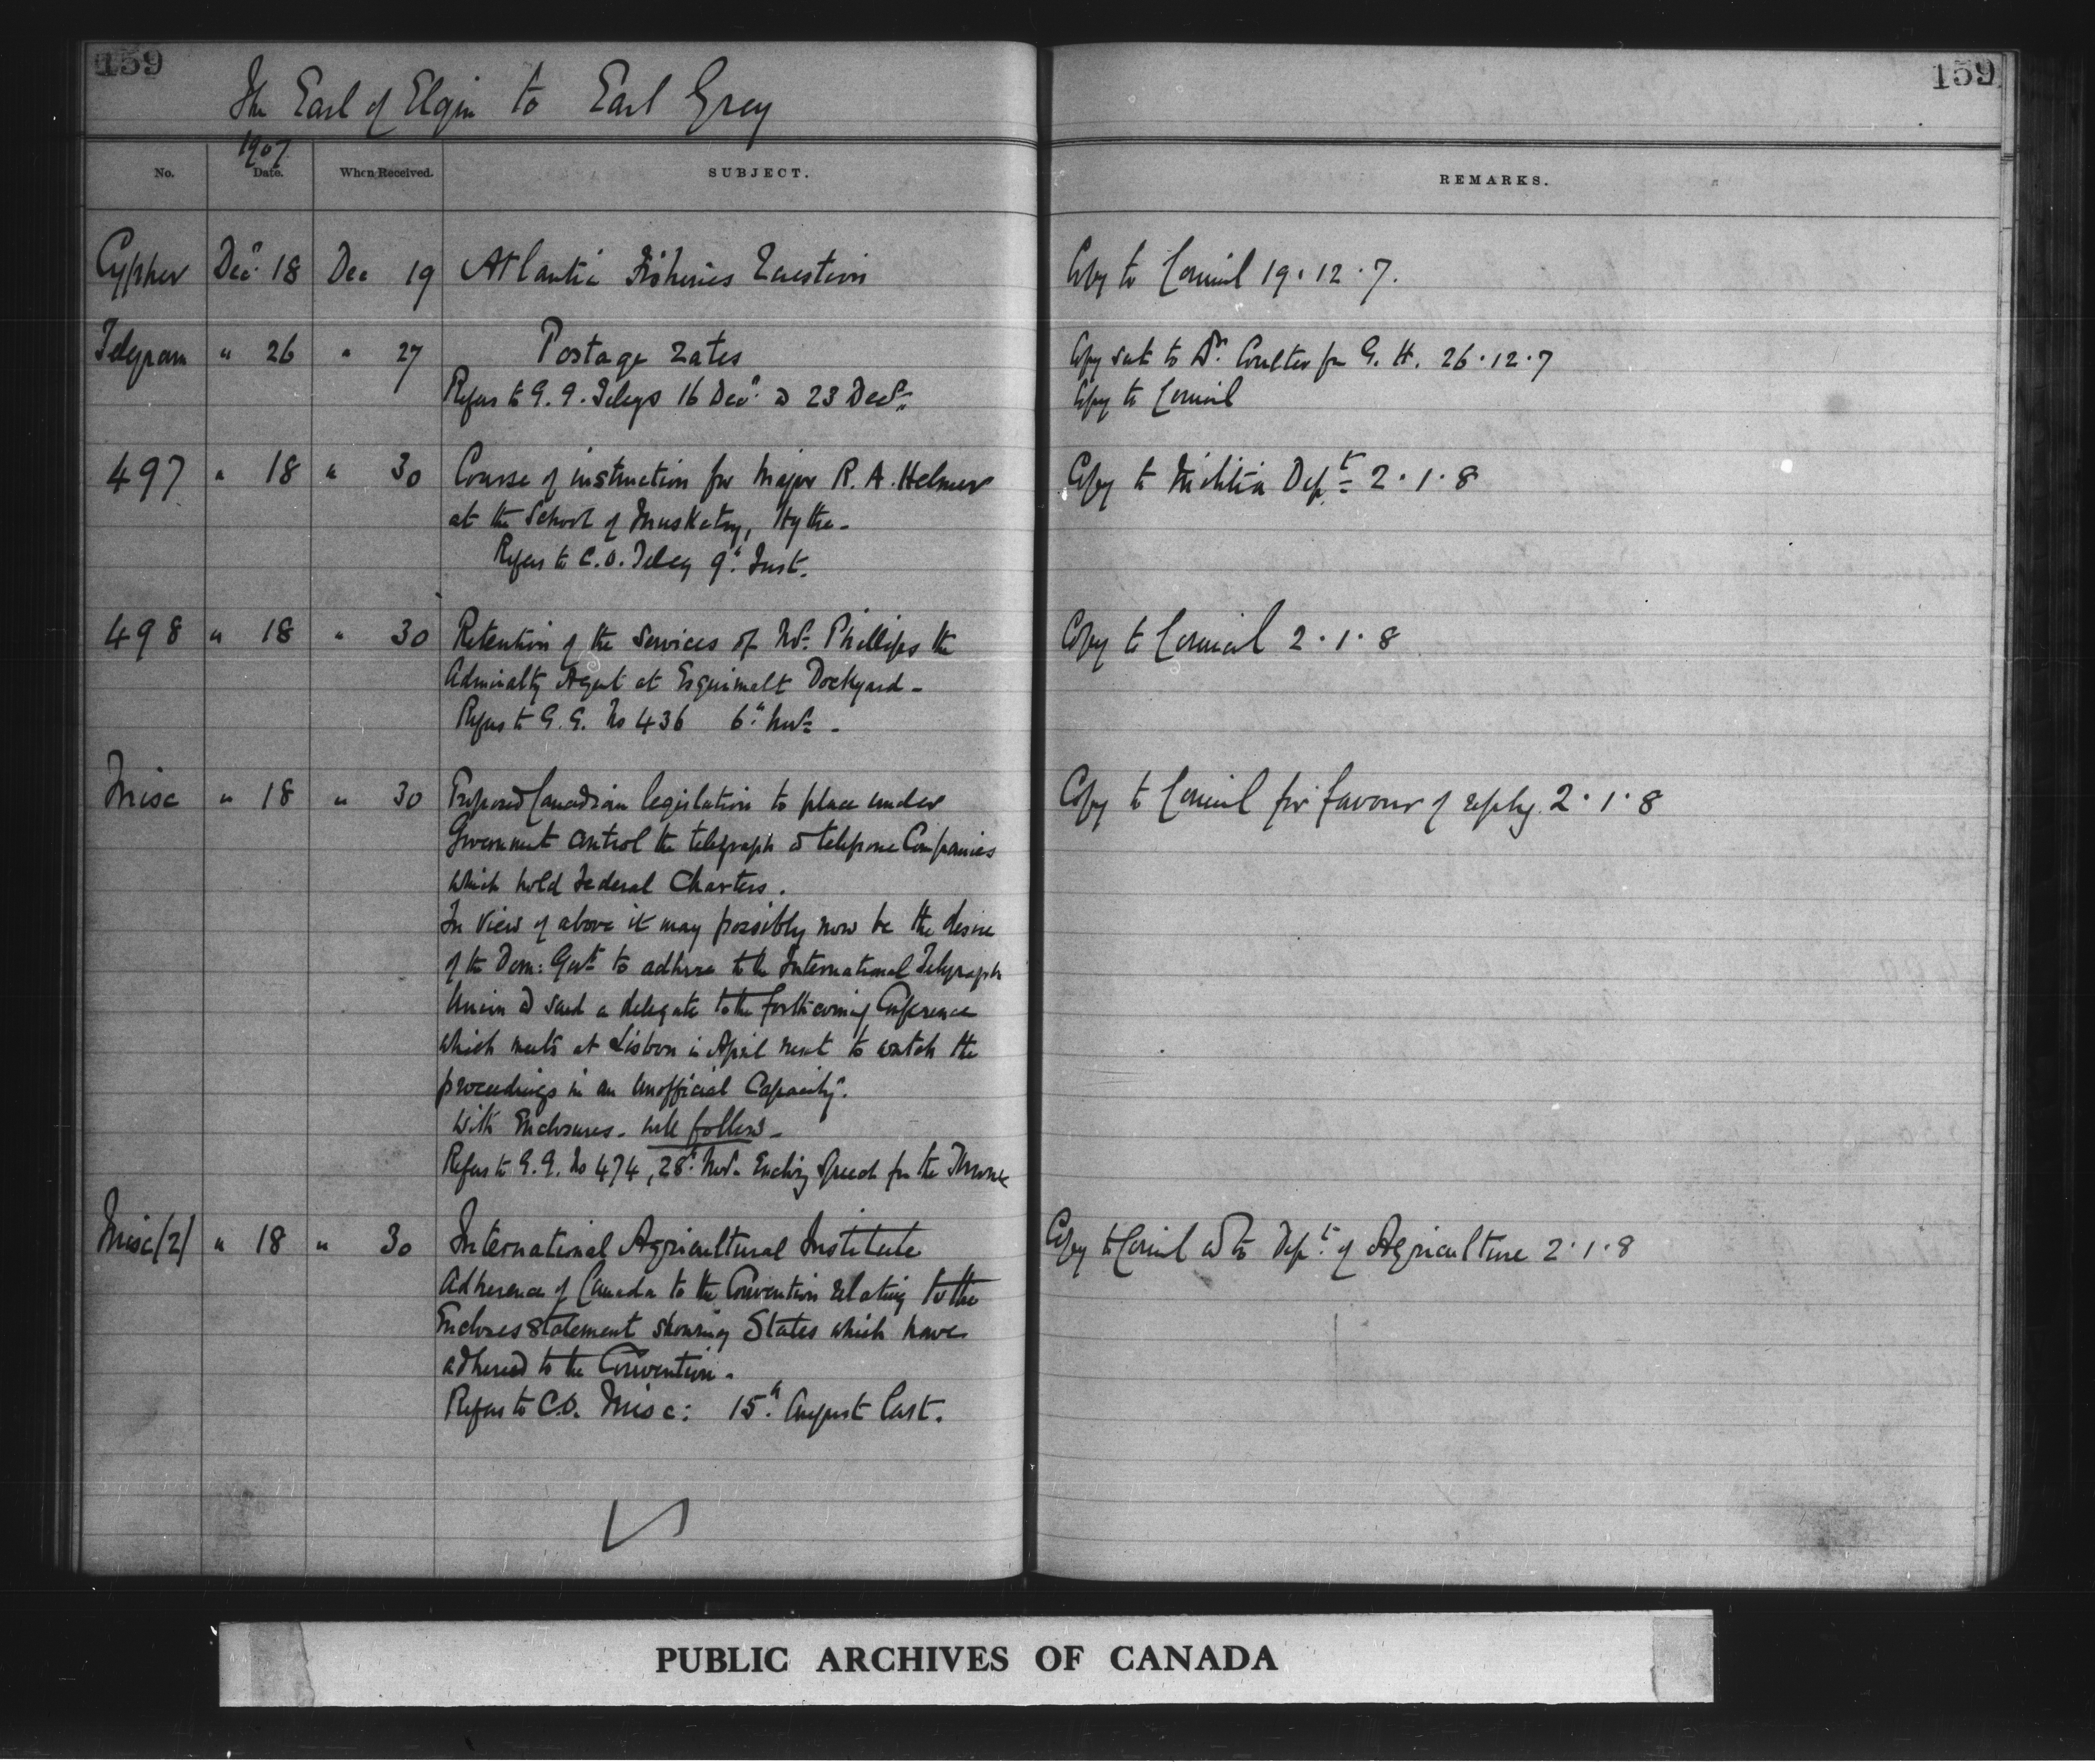 159
159
The Earl of Elgin to Earl Grey
1907
No. Date. When Received. SUBJECT. REMARKS.
Cypher Decr 18 Dec 19 Atlantic Fisheries Question Copy to Council 19.12.7.
Telegram " 26 " 27 Postage Rates Copy sent to Dr. Coulter for G. H. 26.12.7
Refers to G.G. Telegs 16 Decr & 23 Decr. Copy to Council
497 " 18 " 30 Course of instruction for Major R. A. Helmer Copy to Militia Dept 2.1.8
at the School of Musketry, Hythe -
Refers to C.O. Teleg 9th Inst.
498 " 18 " 30 Retention of the Services of Mr. Phillips the Copy to Council 2.1.8
Admiralty Agent at Esquimalt Dockyard -
Refers to G.G. No 436 6th Nov -
Misc " 18 " 30 Proposed Canadian legislation to place under Copy to Council for favour of reply. 2.1.8
Government control the telegraph & telepone Companies
which hold Federal Charters.
In view of above it may possibly now be the desire
of the Dom: Govt to adhere to the International Telegraph
Union & send a delegate to the forthcoming Conference
which meets at Lisbon in April next to watch the
proceedings in an "unofficial Capacity".
With Enclosures - will follow -
Refers to G.G. No 474, 28th Nov. Enclosing Speech from the Throne
Misc (2) " 18 " 30 International Agricultural Institute Copy to Council & to Dept. of Agriculture 2.1.8
Adherence of Canada to the Convention relating to the
Encloses Statement showing States which have
adhered to the Convention -
Refers to C.O. Misc: 15th August last.
PUBLIC ARCHIVES OF CANADA